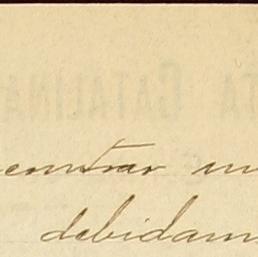 TA CATALINA
contrar un
debidam